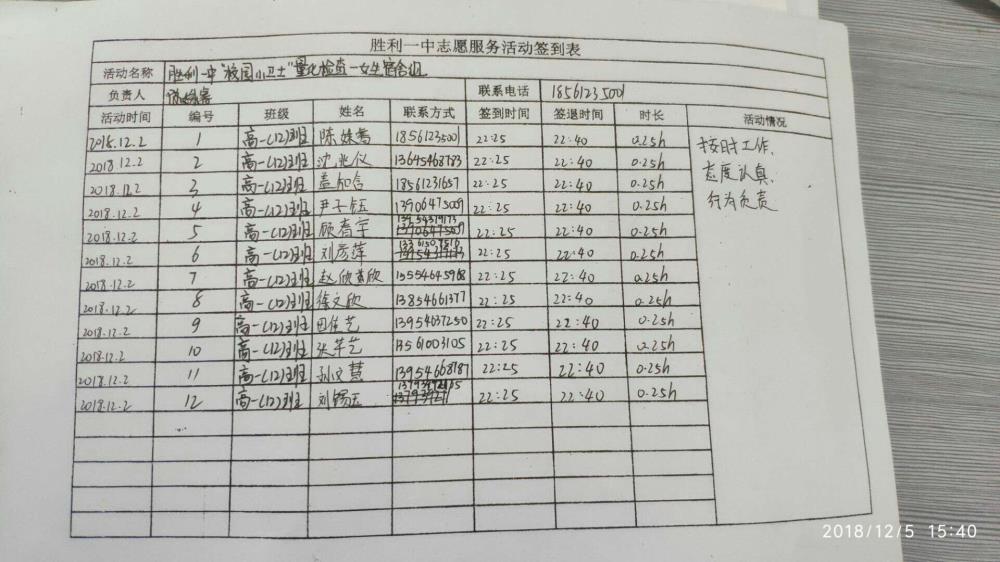 胜利一中志愿服务活动签到表
活动名称 胜利一中"校园小卫士"量化检查一女生宿舍组
负责人 联系电话 18561235001
活动时间 编号 班级 姓名 联系方式 签到时间 签退时间 时长 活动情况
2018.12.2 1 高一(12)班 陈姝 18561235001 22:25 22:40 0.25h
2018.12.2 2 高一(12)班 沈兆仪 13645468783 22:25 22:40 0.25h
2018.12.2 3 高一(12)班 盖如含 18561231657 22:25 22:40 0.25h
2018.12.2 4 高一(12)班 尹子钰 13906475009 22:25 22:40 0.25h
2018.12.2 5 高一(12)班 顾春宇 22:25 22:40 0.25h
2018.12.2 6 高一(12)班 刘彦萍 22:25 22:40 0.25h
2018.12.2 7 高一(12)班 赵欣 15554645968 22:25 22:40 0.25h
2018.12.2 8 高一(12)班 徐文欣 13854661377 22:25 22:40 0.25h
2018.12.2 9 高一(12)班 田佳艺 13954637250 22:25 22:40 0.25h
2018.12.2 10 高一(12)班 张芊艺 13561003105 22:25 22:40 0.25h
2018.12.2 11 高一(12)班 孙文慧 13954668787 22:25 22:40 0.25h
2018.12.2 12 高一(12)班 刘锡玉 22:25 22:40 0.25h
按时工作、
态度认真、
行为负责
2018/12/5 15:40